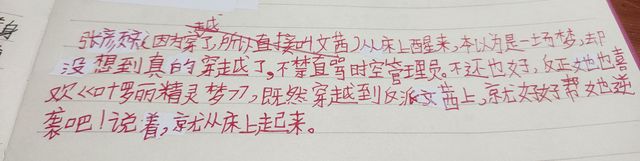 越
张彦(因为穿了,所以直接叫文茜)从床上醒来,本以为是一场梦,却
没想到真的穿越了。不禁直骂时空管理员。不还也好,反正她也喜
欢《叶罗丽精灵梦》,既然穿越到反派文茜上,就好好帮她逆
袭吧!说着,就从床上走起来。
身